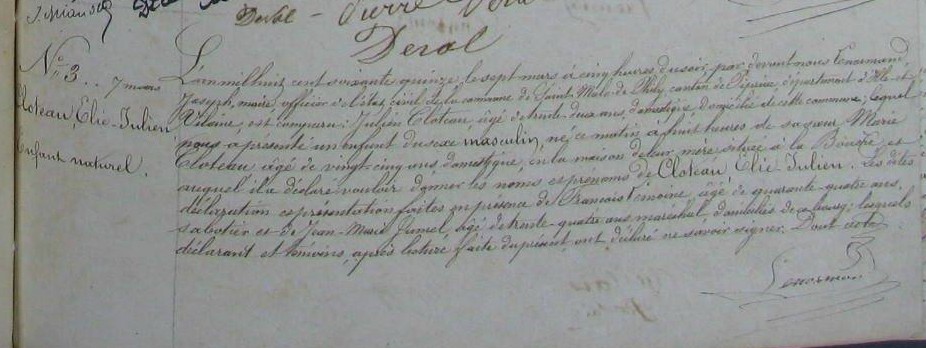 Deval
Deval
N° 3 .. 7 mars
Cloteau, Elie-Julien
Enfant naturel.
L'an mil huit cent soixante quinze, le sept mars à cinq heures du soir, par devant nous Lenormand,
Joseph, maire, officier de l'état civil de la commune de Saint-Malo de Phily, canton de Pipriac, département d'Ille-et-
Vilaine, est comparu: Julien Cloteau, âgé de trente deux ans, domestique, domicilié de cette commune; lequel
nous a présenté un enfant du sexe masculin, né ce matin à huit heures de sa sœur Marie
Cloteau, âgée de vingt cinq ans, domestique, en la maison de leur mère située à la et
auquel il a déclaré vouloir donner les noms et prénoms de Cloteau, Elie Julien. Les dites
déclaration et présentation faites en présence de François âgé de quarante-quatre ans,
sabotier et de Jean-Marie Jumel, âgé de trente-quatre ans maréchal, domiciliés de ce bourg; lesquels
déclarant et témoins, après lecture faite du présent, ont déclaré ne savoir signer. Dont acte
Lenormand